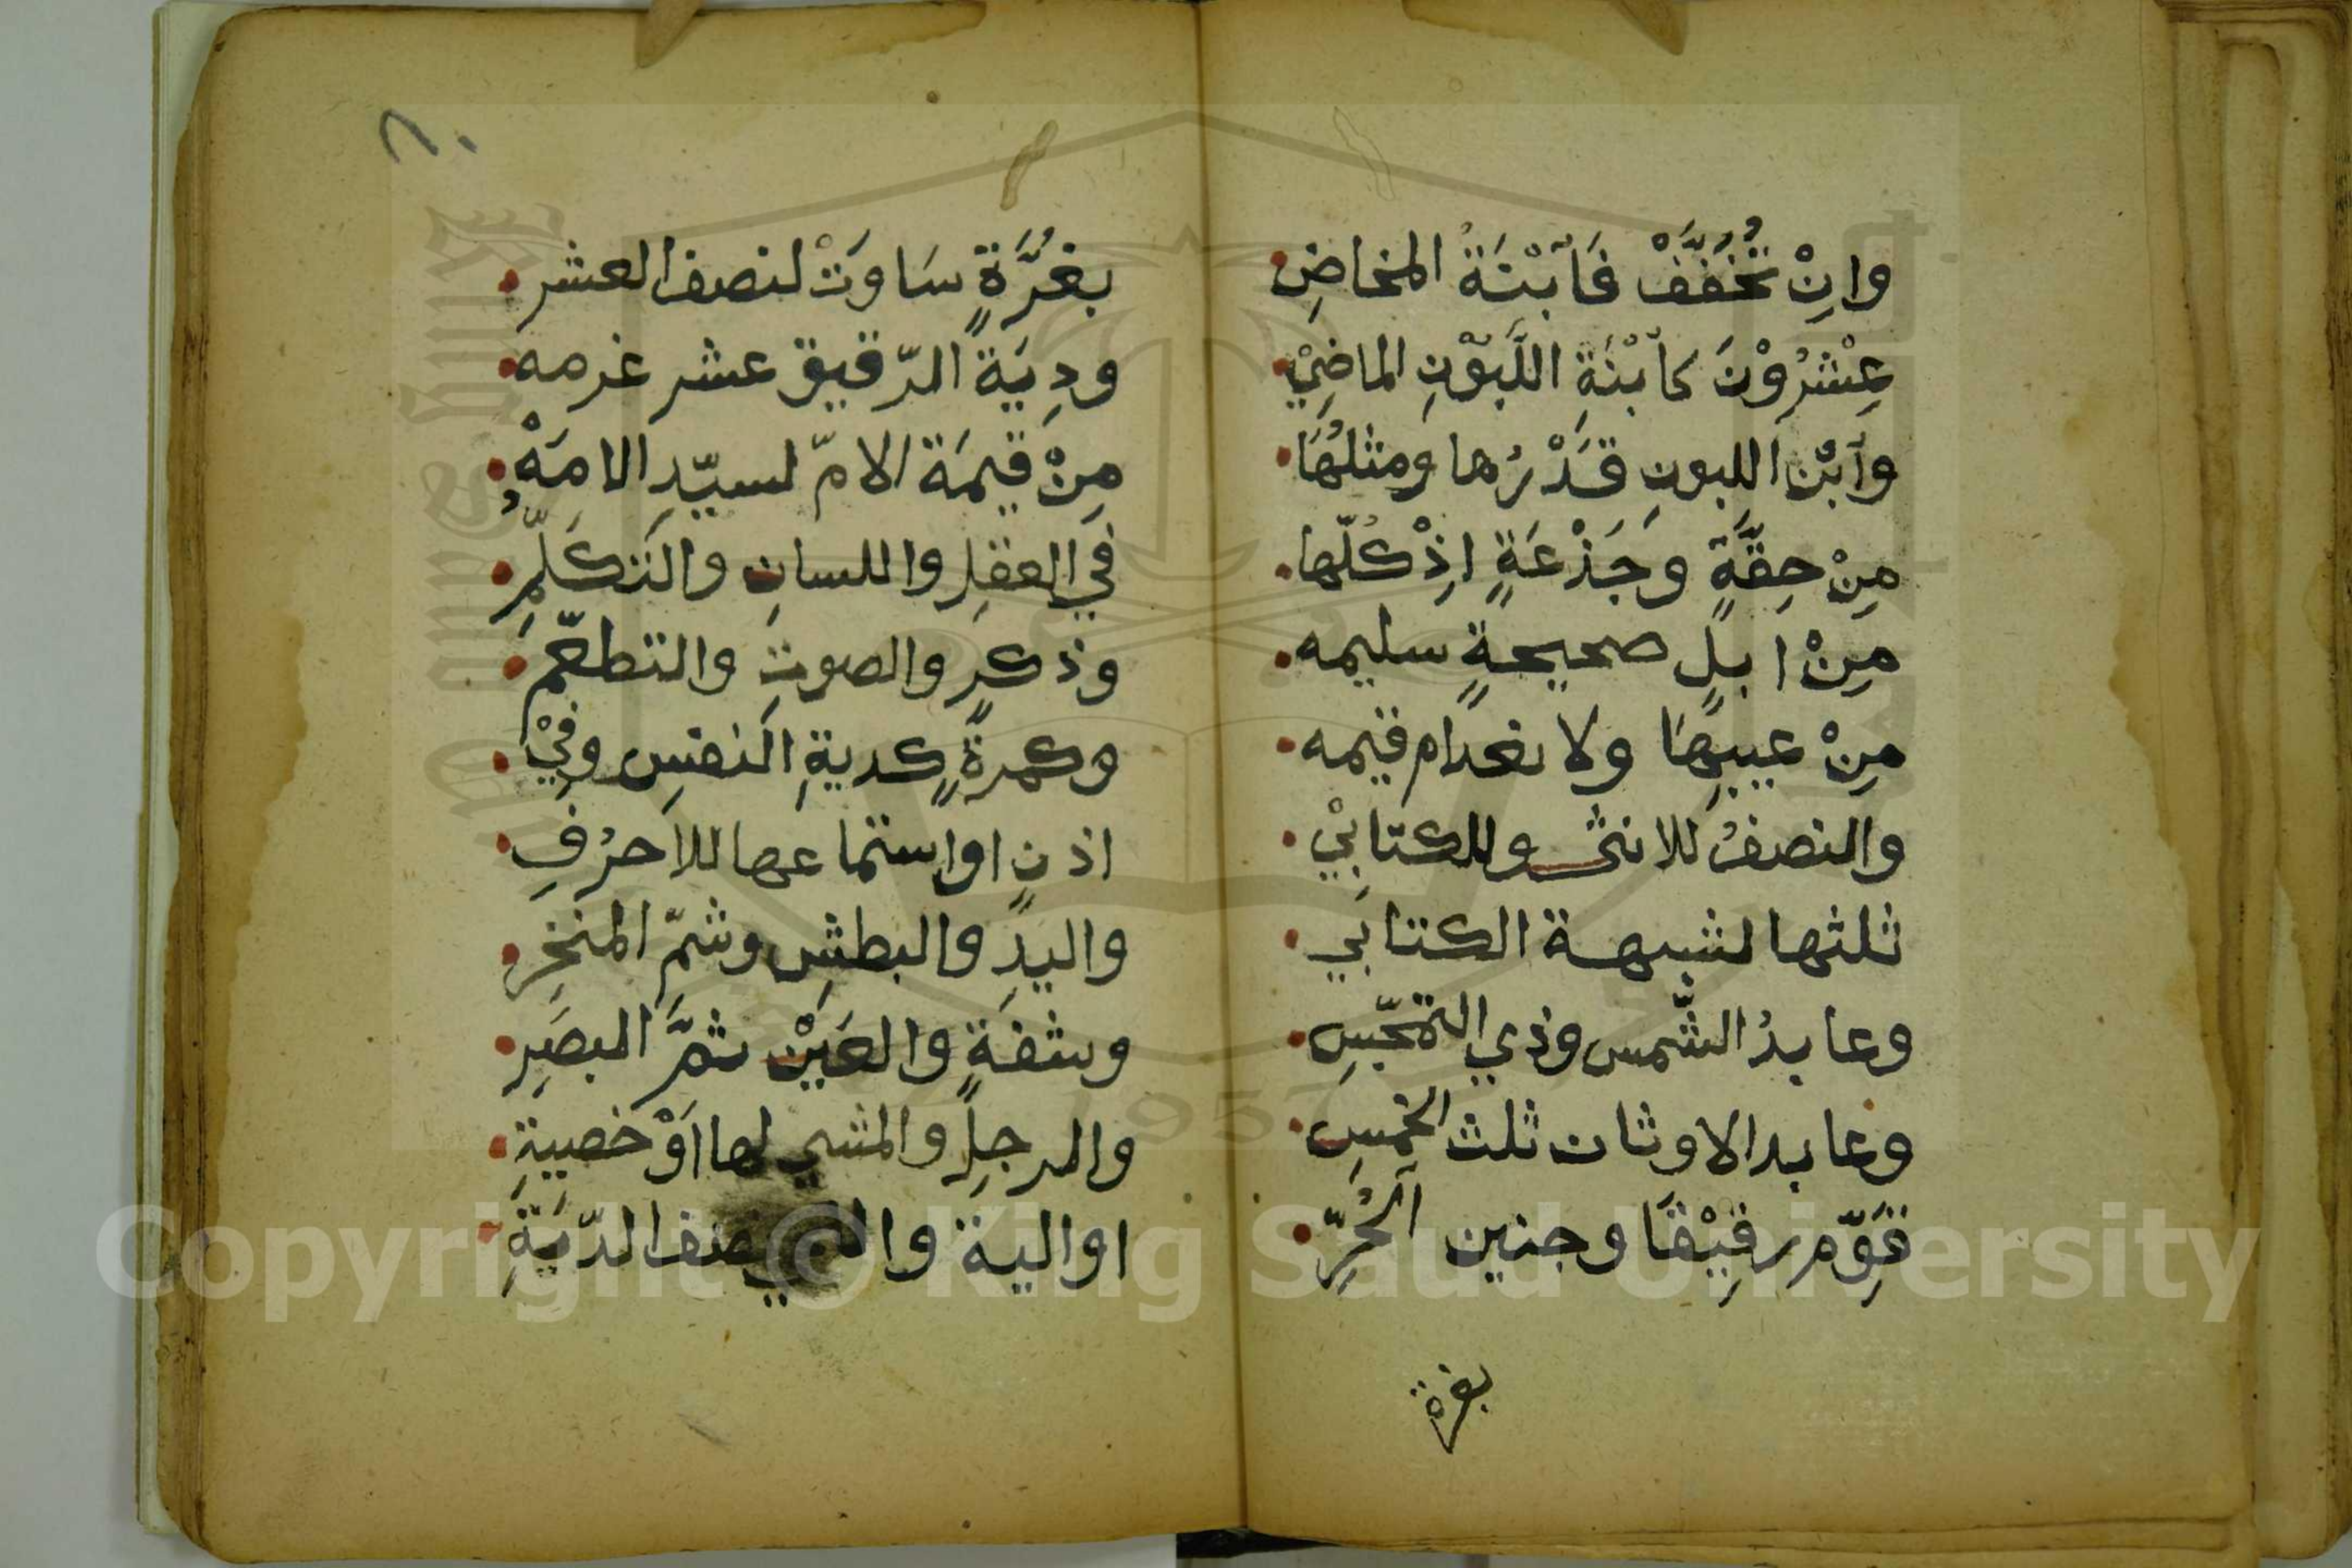 وانِْ تُخَفَّفْ فَٱبْنَةُ المخاضِ
عِشْرُوْنَ كٱبْنَةِ اللَّبُوْنِ الماضِيْ
وٱبْن اللبونِ قَدْرُها ومثلُهَا
مِنْ حِقَّةٍ وجَذْعَةٍ اِذْ كُلّها
مِنْ ابلٍ صحيحةٍ سليمه
مِنْ عيبِهَا ولانعدام قيمه
والنصفُ للانثى وللكتابيْ
ثلثها لشبهة الكتابي
وعابدُ الشَّمس وذي التمجّسِ
وعابد الاوثان ثلث الخمسِ
قَوِّم رقِيْقًا وجنين ٱلحُرِّ
بغرة
بغُرَّةٍ سَاوَتْ لنصف العشر
ودِيَة الرّقيق عشر غرمه
مِنْ قيمَة الامّ لسيّدِ الامَهْ
في العقلِ واللسانِ والتَكَلّمِ
وذكرٍ والصوتِ والتطعّم
وكمرةٍ كديةِ النفسِ وفِيْ
اذنٍ او استماعها للاحرُفِ
واليدِ والبطشِ وشمّ المنخِرِ
وشفةٍ والعَيْن ثمَّ البصَرِ
والرجلِ والمشي لها اَوْ خصيةِ
او الية نصف الدّيَةِ
Copyright © King Saud University
1957